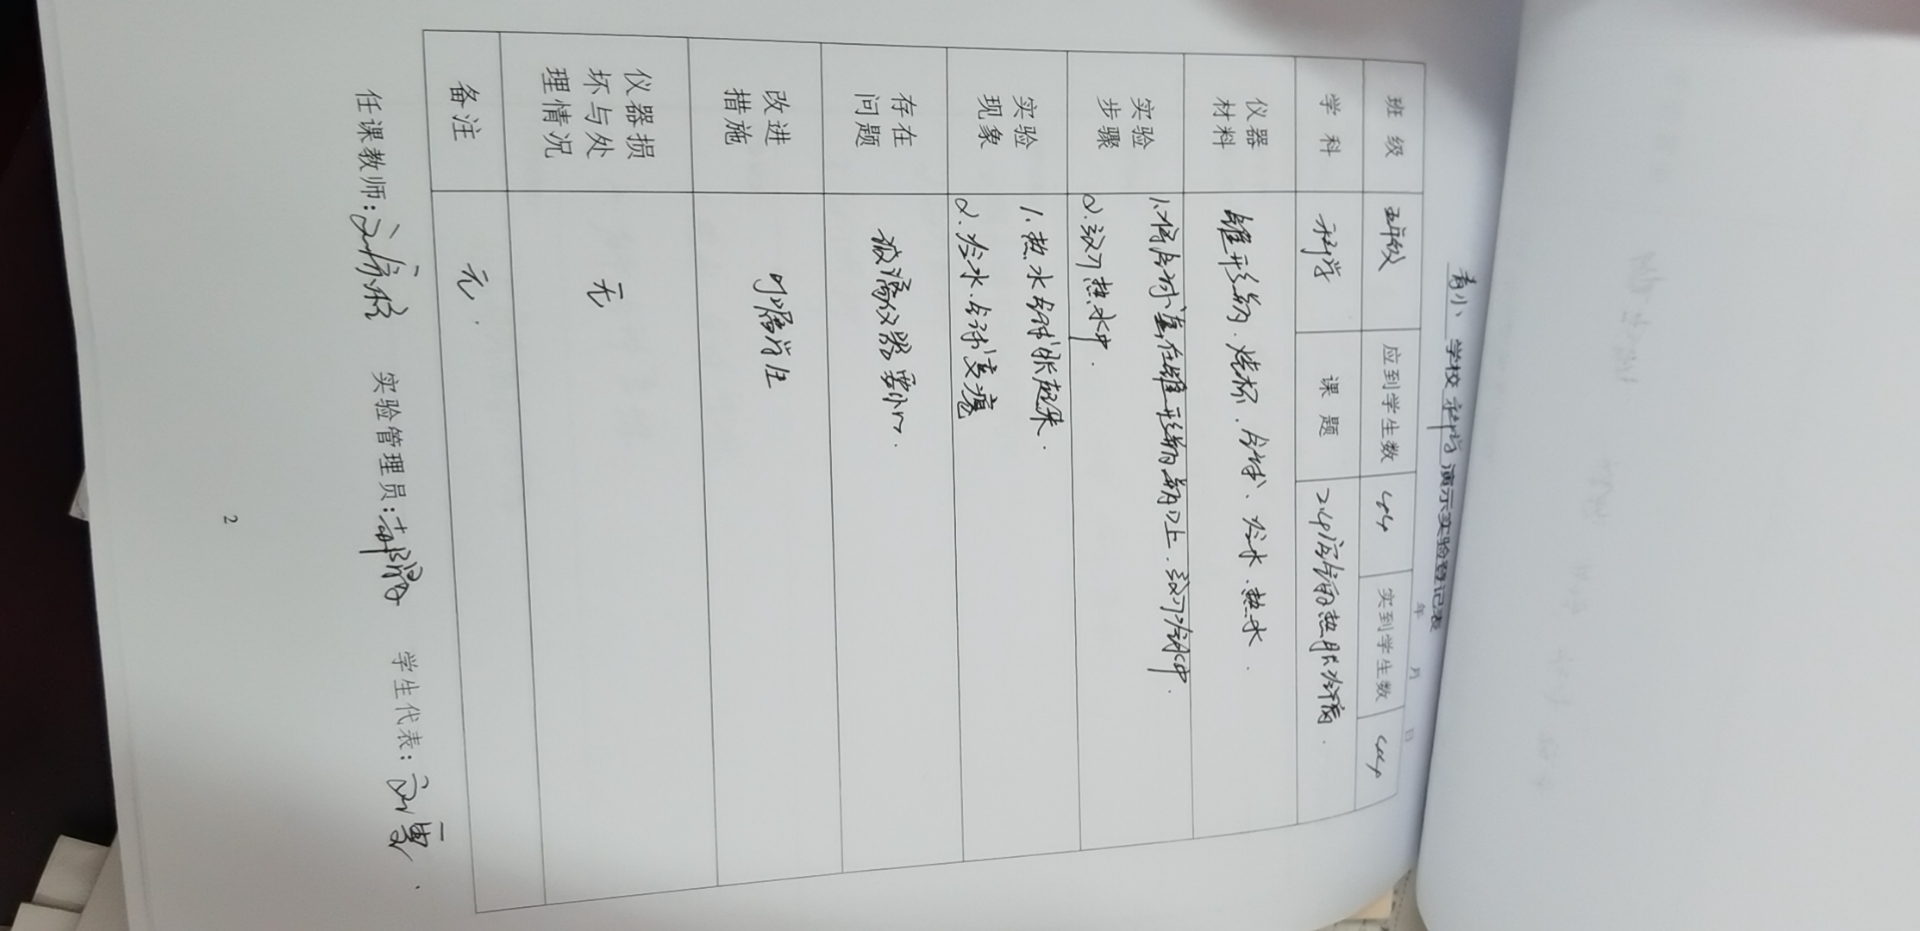 青小 学校 科学 演示实验登记表
年 月 日
班 级 五年级 应到学生数 44 实到学生数 44
学 科 科学 课 题 24 的热胀冷
仪器
材料
锥形瓶、烧杯、气球、冷水、热水.
实验
步骤
1.将气球套在锥形瓶瓶口上.放入冷水中.
2.放入热水中.
实验
现象
1.热水气球胀起来.
2.冷水.气球变瘪
存在
问题
玻璃仪器要小心.
改进
措施
叮嘱学生
仪器损
坏与处
理情况
无
备注
无.
任课教师:
实验管理员:
学生代表:
2